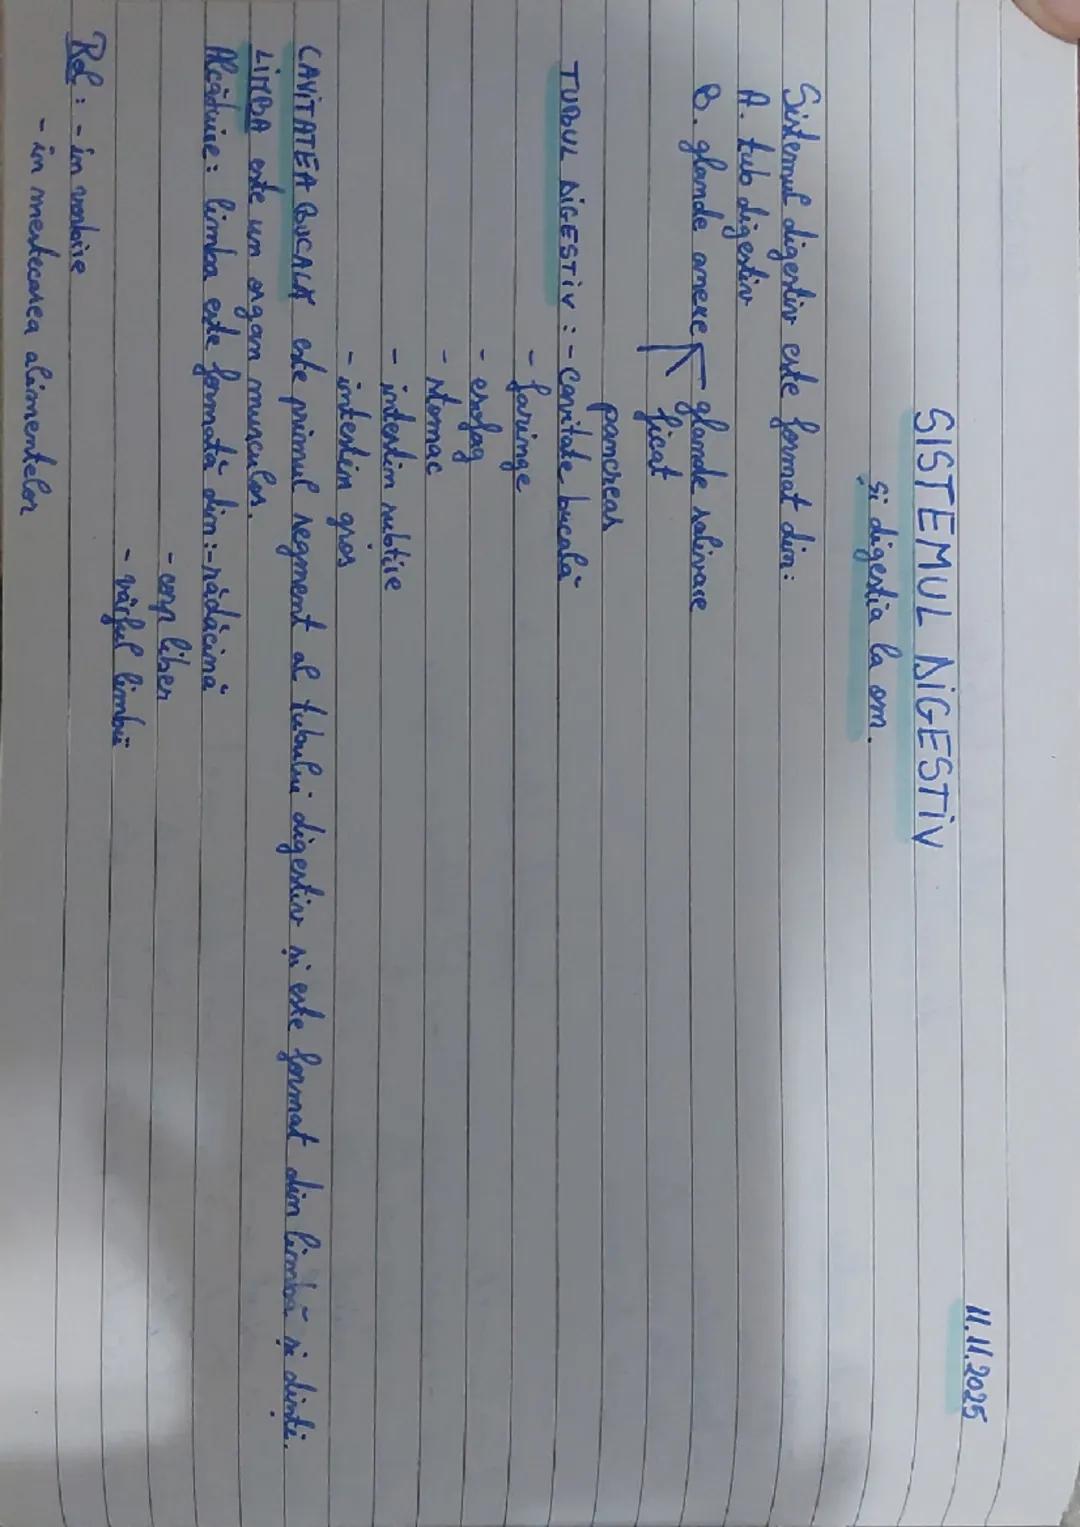 11.11.2025
SISTEMUL DIGESTIV
și digestia la om.
Sistemul digestiv este format din:
A. tub digestiv
B. glande anexe glande salivare
ficat
pancreas
TUBUL DIGESTIV : - Cavitate bucală
- faringe
- esofag
- stomac
- intestin subtire
- intestin gros
CAVITATEA BUCALĂ este primul segment al tubului digestiv și este format din limbă și dinti.
LIMBA este un organ musculos.
Alcătuire: limba este formată din:- rădăcină
- corp liber
- vârful limbii
Rol : - în vorbire
- în mestecarea alimentelor